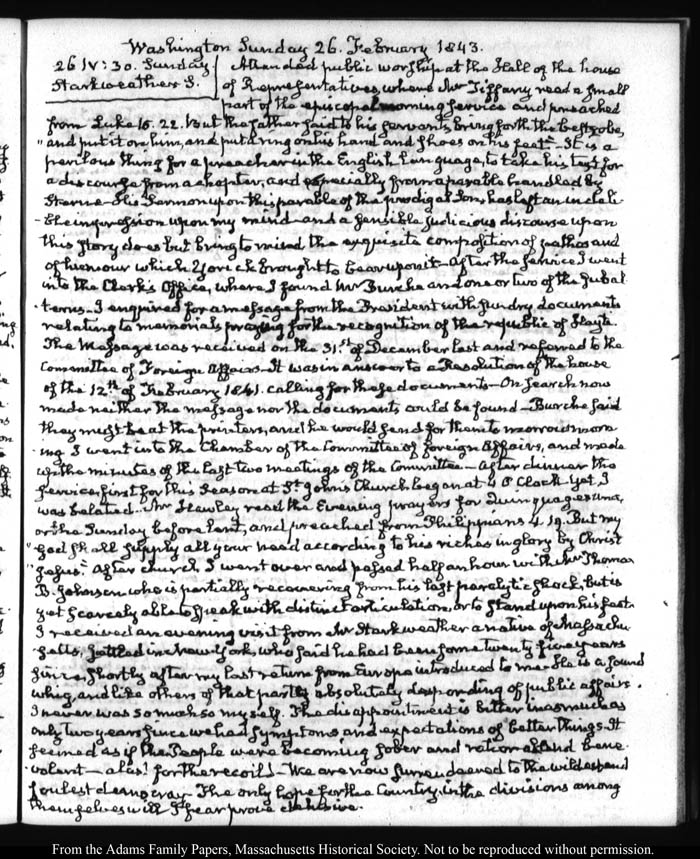 Washington Sunday 26. February 1843.
26 IV:30. Sunday
Starkweather S.
Attended public worship at the Hall of the house
of Representatives, where Mr Tiffany read a small
part of the episcopal morning service and preached
from Luke 15. 22. But the father said to his servants, bring forth the best robe,
"and put it on him, and put a ring on his hand and shoes on his feet" It is a
perilous thing for a preacher in the English Language, to take his text for
a discourse from a chapter, and especially from a parable handled by
Sterne—His Sermon upon this parable of the prodigal Son, has left an indeli-
-ble impression upon my mind—and a sensible judicious discourse upon
this story does but bring to mind the exquisite composition of pathos and
of humour which Yorick brought to bear upon it—After the service I went
into the Clerk's Office, where I found Mr Burche and one or two of the subal-
-terns. I enquired for a message from the President with sundry documents
relating to memorials praying for the recognition of the republic of Hayti.
The Message was received on the 31st of December last and referred to the
Committee of Foreign Affairs—It was in answer to a Resolution of the house
of the 12th of February 1841. calling for these documents—On search now
made neither the message nor the documents could be found—Burche said
they must be at the printers, and he would send for them to morrow morn-
-ing. I went into the Chamber of the Committee of foreign Affairs, and made
up the minutes of the last two meetings of the Committee—After dinner the
service, first for this Season at St. John's Church began at 4 O'Clock—Yet, I
was belated. Mr Hawley read the Evening prayers for Quinquagesima,
or the Sunday before Lent, and preached from Philippians 4. 19. But my
"God shall supply all your need according to his riches in glory by Christ
"Jesus." After church, I went over and passed half an hour with Mr Thomas
B. Johnson who is partially recovering from his last paralytic shock, but is
yet scarcely able to speak with distinct articulation, or to stand upon his feet.
I received an evening visit from Mr Starkweather a native of Massachu-
setts, settled in New-York, who said he had been some twenty five years
since, shortly after my last return from Europe introduced to me. He is a sound
whig, and like others of that party absolutely desponding of public affairs.
I never was so much so myself. The disappointment is bitter inasmuch as
only two years since we had symptoms and expectations of better things. It
seemed as if the People were becoming sober and rational and bene-
-volent—alas! for the recoil!—We are now surrendered to the wildest and
foulest democracy. The only hope for the Country, in the divisions among
themselves will I fear prove delusive.
From the Adams Family Papers, Massachusetts Historical Society. Not to be reproduced without permission.